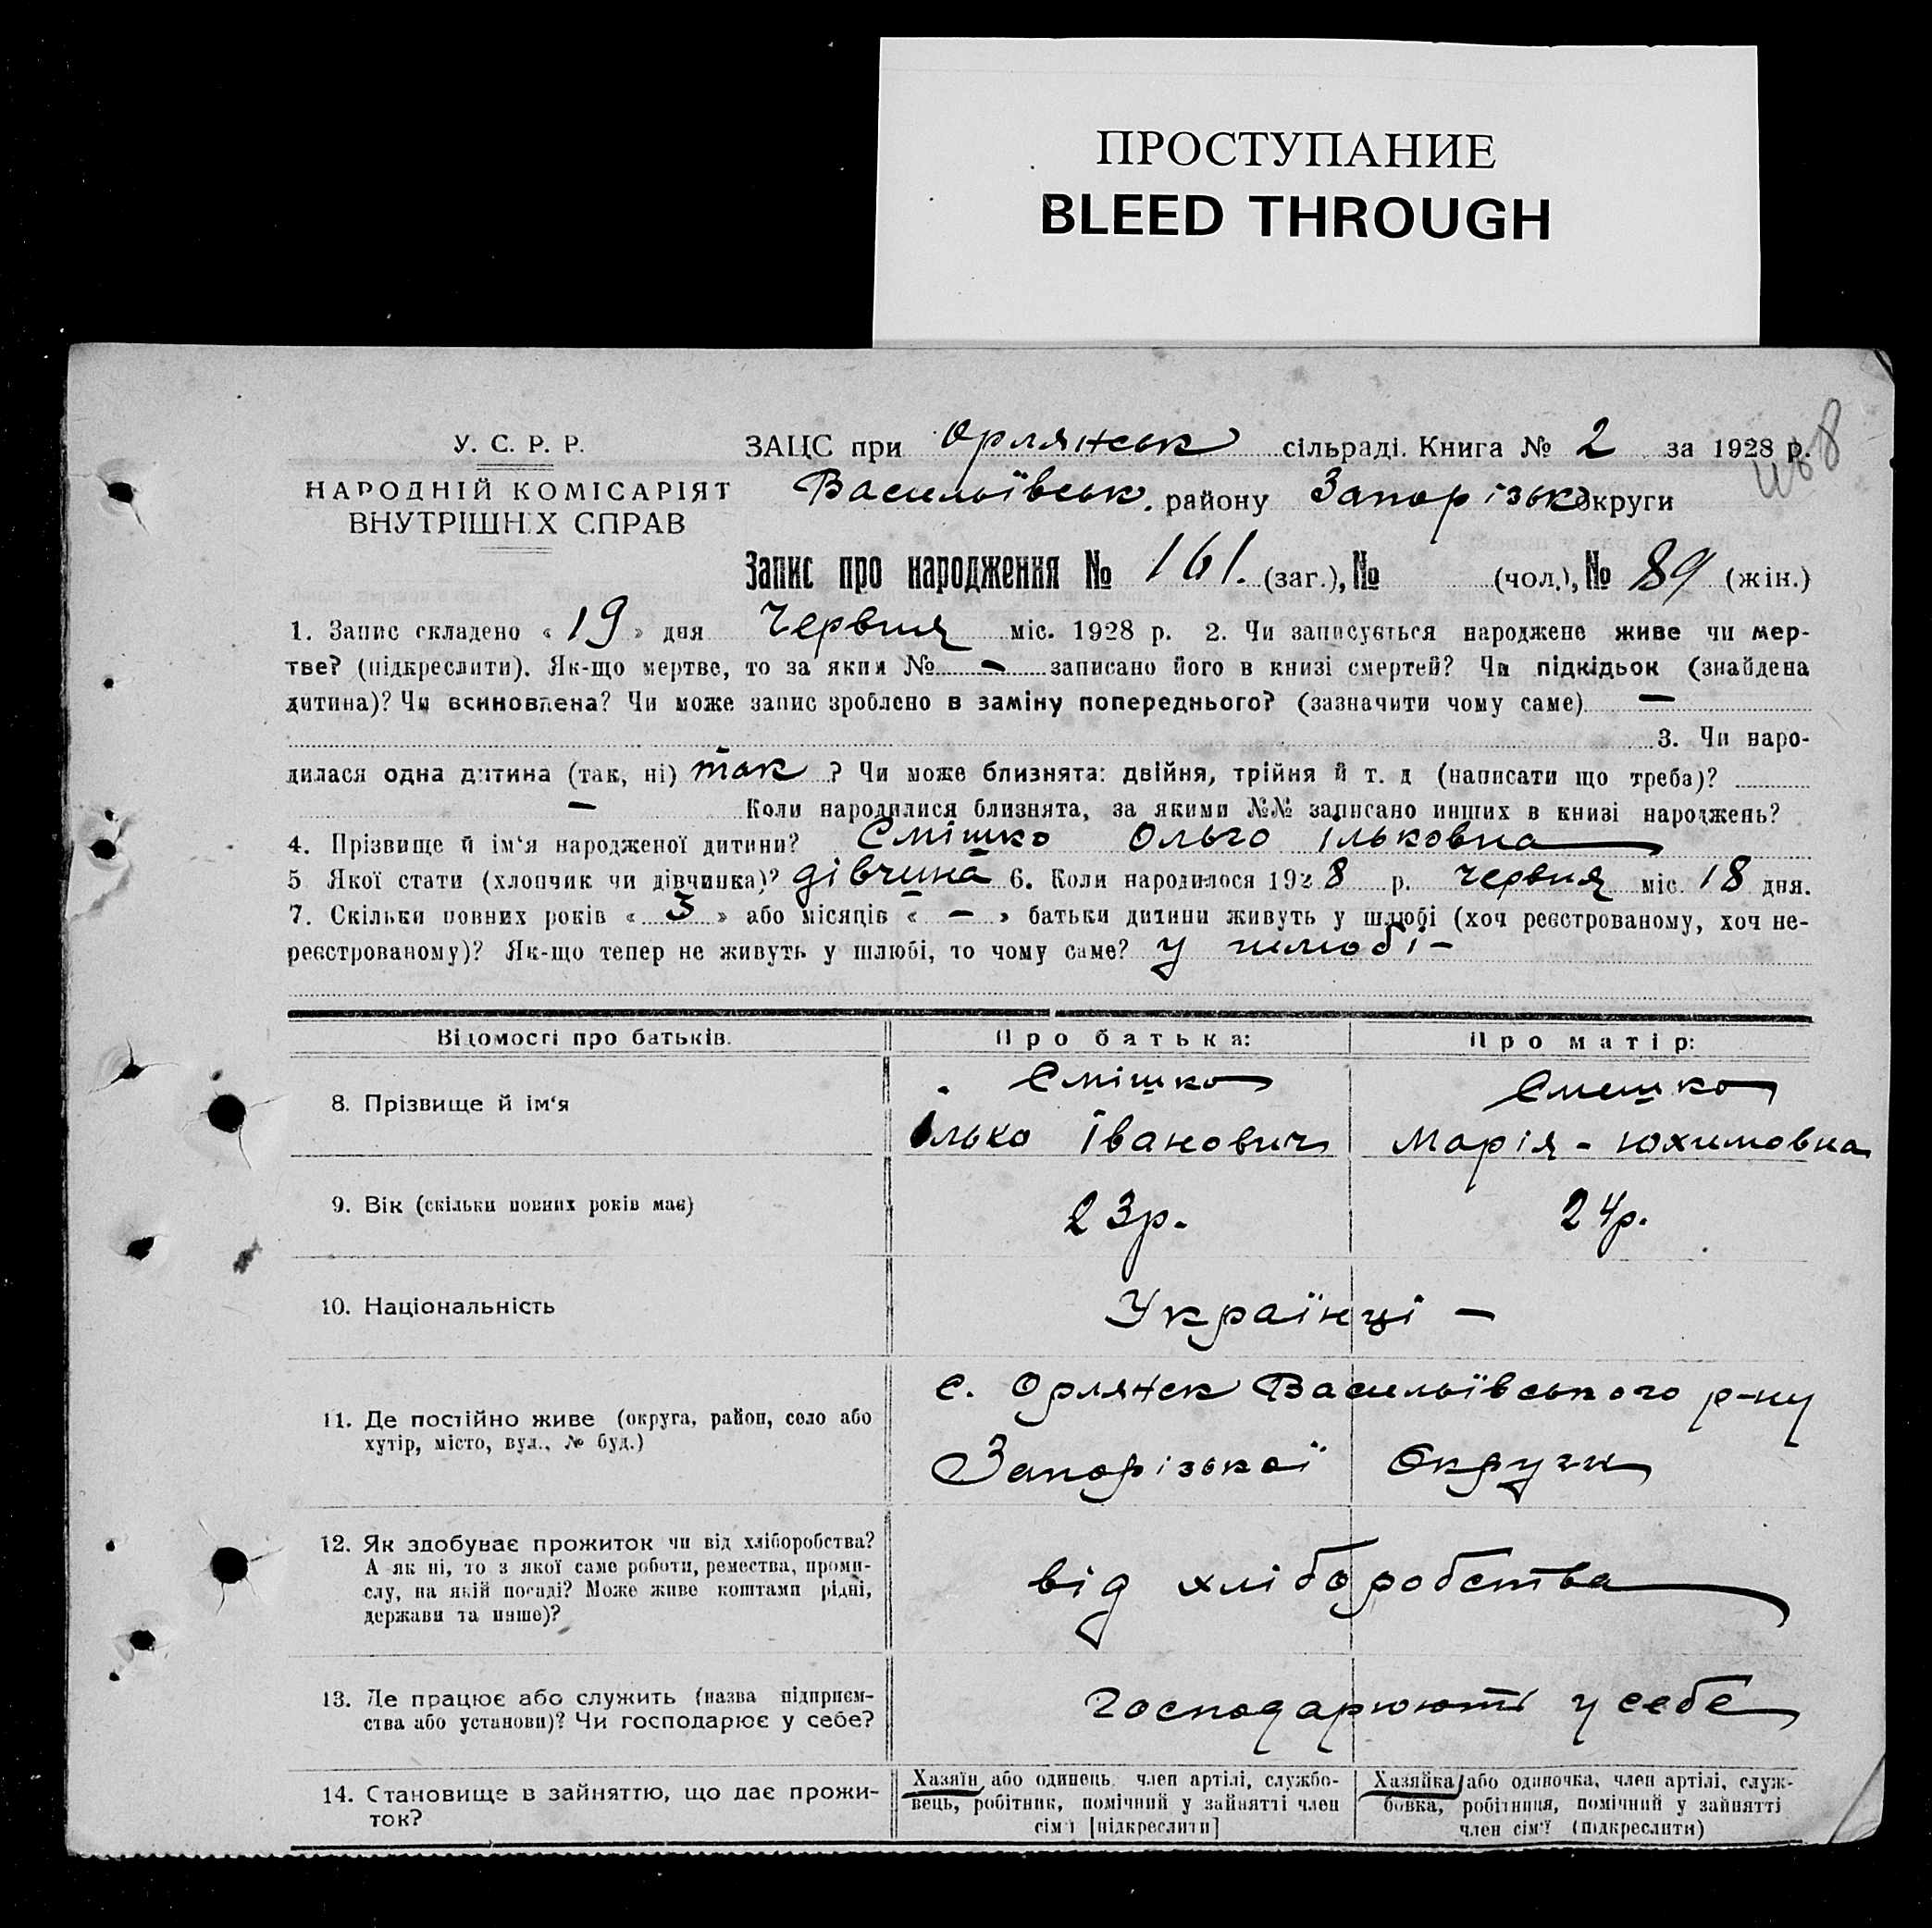 ПРОСТУПАНИЕ
BLEED THROUGH
У. С. Р. Р.
НАРОДНІЙ КОМІСАРІЯТ
ВНУТРІШНІХ СПРАВ
ЗАЦС при Орлянськ сільраді. Книга № 2 за 1928 р.
Васильївськ. району Запорізьк округи
Запис про народження № 161. (заг.), № (чол.), № 89 (жін.)
1. Запис складено « 19 » дня Червня міс. 1928 р. 2. Чи записується народжене живе чи мер-
тве? (підкреслити). Як-що мертве, то за яким № — записано його в книзі смертей? Чи підкідьок (знайдена
дитина)? Чи всиновлена? Чи може запис зроблено в заміну попереднього? (зазначити чому саме) —
3. Чи наро-
дилася одна дитина (так, ні) так ? Чи може близнята: двійня, трійня й т. д (написати що треба)?
— Коли народилися близнята, за якими №№ записано инших в книзі народжень?
4. Прізвище й ім'я народженої дитини? Смішко Ольго Ільковна
5 Якої стати (хлопчик чи дівчинка)? дівчина 6. Коли народилося 1928 р. червня міс. 18 дня.
7. Скільки повних років « 3 » або місяців « — » батьки дитини живуть у шлюбі (хоч реєстрованому, хоч не-
реєстрованому)? Як-що тепер не живуть у шлюбі, то чому саме? у шлюбі —
Відомості про батьків. Про батька: Про матір:
8. Прізвище й ім'я Смішко Ілько Іванович Смешко Марія - Юхимовна
9. Вік (скільки повних років має) 23р. 24р.
10. Національність Українці —
11. Де постійно живе (округа, район, село або
хутір, місто, вул., № буд.)
с. Орлянск Васильївського р-ну
Запорізької Округи
12. Як здобуває прожиток чи від хліборобства?
А як ні, то з якої саме роботи, ремества, проми-
слу, на якій посаді? Може живе коштами рідні,
держави та инше)?
від хліборобства
13. Де працює або служить (назва підприєм-
ства або установи)? Чи господарює у себе?
Господарюють у себе
14. Становище в зайняттю, що дає прожи-
ток?
Хазяїн або одинець, член артілі, службо-
вець, робітник, помічний у зайнятті член
сім'ї [підкреслити]
Хазяйка або одиночка, член артілі, служ-
бовка, робітниця, помічний у зайнятті
член сім'ї (підкреслити)